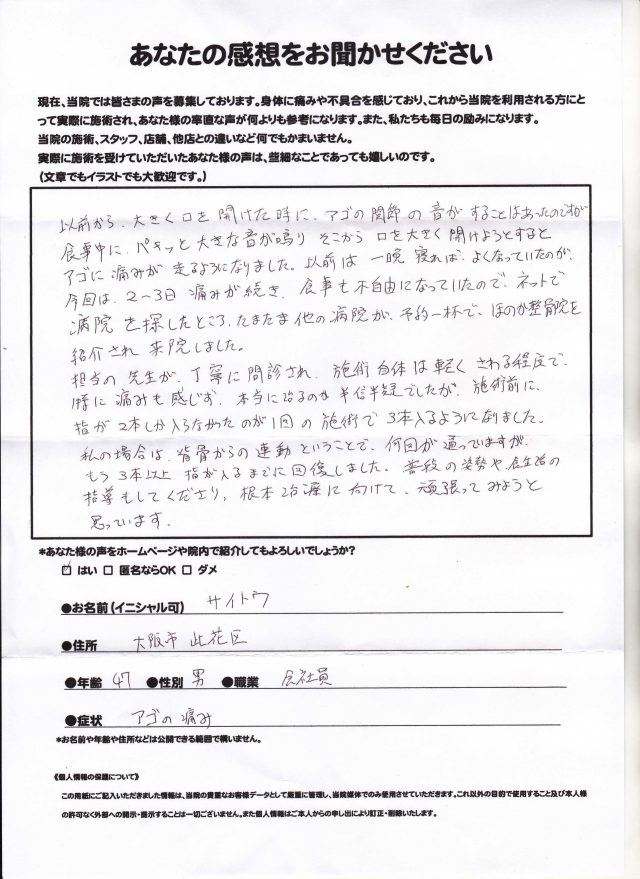 あなたの感想をお聞かせください
現在、当院では皆さまの声を募集しております。身体に痛みや不具合を感じており、これから当院を利用される方にと
って実際に施術され、あなた様の率直な声が何よりも参考になります。また、私たちも毎日の励みになります。
当院の施術、スタッフ、店舗、他店との違いなど何でもかまいません。
実際に施術を受けていただいたあなた様の声は、些細なことであっても嬉しいのです。
(文章でもイラストでも大歓迎です。)
以前から、大きく口を開けた時に、アゴの関節の音がすることはあったのですが
食事中に、パキッと大きな音が鳴り そこから 口を大きく開けようとすると
アゴに痛みが走るようになりました。以前は 一晩 寝れば、よくなっていたが、
今回は、2〜3日 痛みが続き、食事も不自由になっていたので、ネットで
病院を探したところ、たまたま他の病院が、予約一杯で、ほのか整骨院を
紹介され 来院しました。
担当の先生が、丁寧に問診され、施術自体は軽くされる程度で、
特に痛みも感じず、本当に治るのか半信半疑でしたが、施術前に、
指が2本しか入らなかったのが1回の施術で3本入るようになりました。
私の場合は、背骨からの連動ということで、何回か通っていますが、
もう3本以上 指が入るまでに回復しました。普段の姿勢や、食生活の
指導もしてくださり、根本治療に向けて、頑張ってみようと
思っています。
*あなた様の声をホームページや院内で紹介してもよろしいでしょうか?
☑ はい □ 匿名ならOK □ ダメ
●お名前(イニシャル可) サイトウ
●住所 大阪市 此花区
●年齢 47 ●性別 男 ●職業 会社員
●症状 アゴの痛み
*お名前や年齢や住所などは公開できる範囲で構いません。
《個人情報の保護について》
この用紙にご記入いただきました情報は、当院の貴重なお客様データとして厳重に管理し、当院媒体でのみ使用させていただきます。これ以外の目的で使用すること及び本人様
の許可なく外部への開示・提示することは一切ございません。また個人情報はご本人からの申し出により訂正・削除いたします。